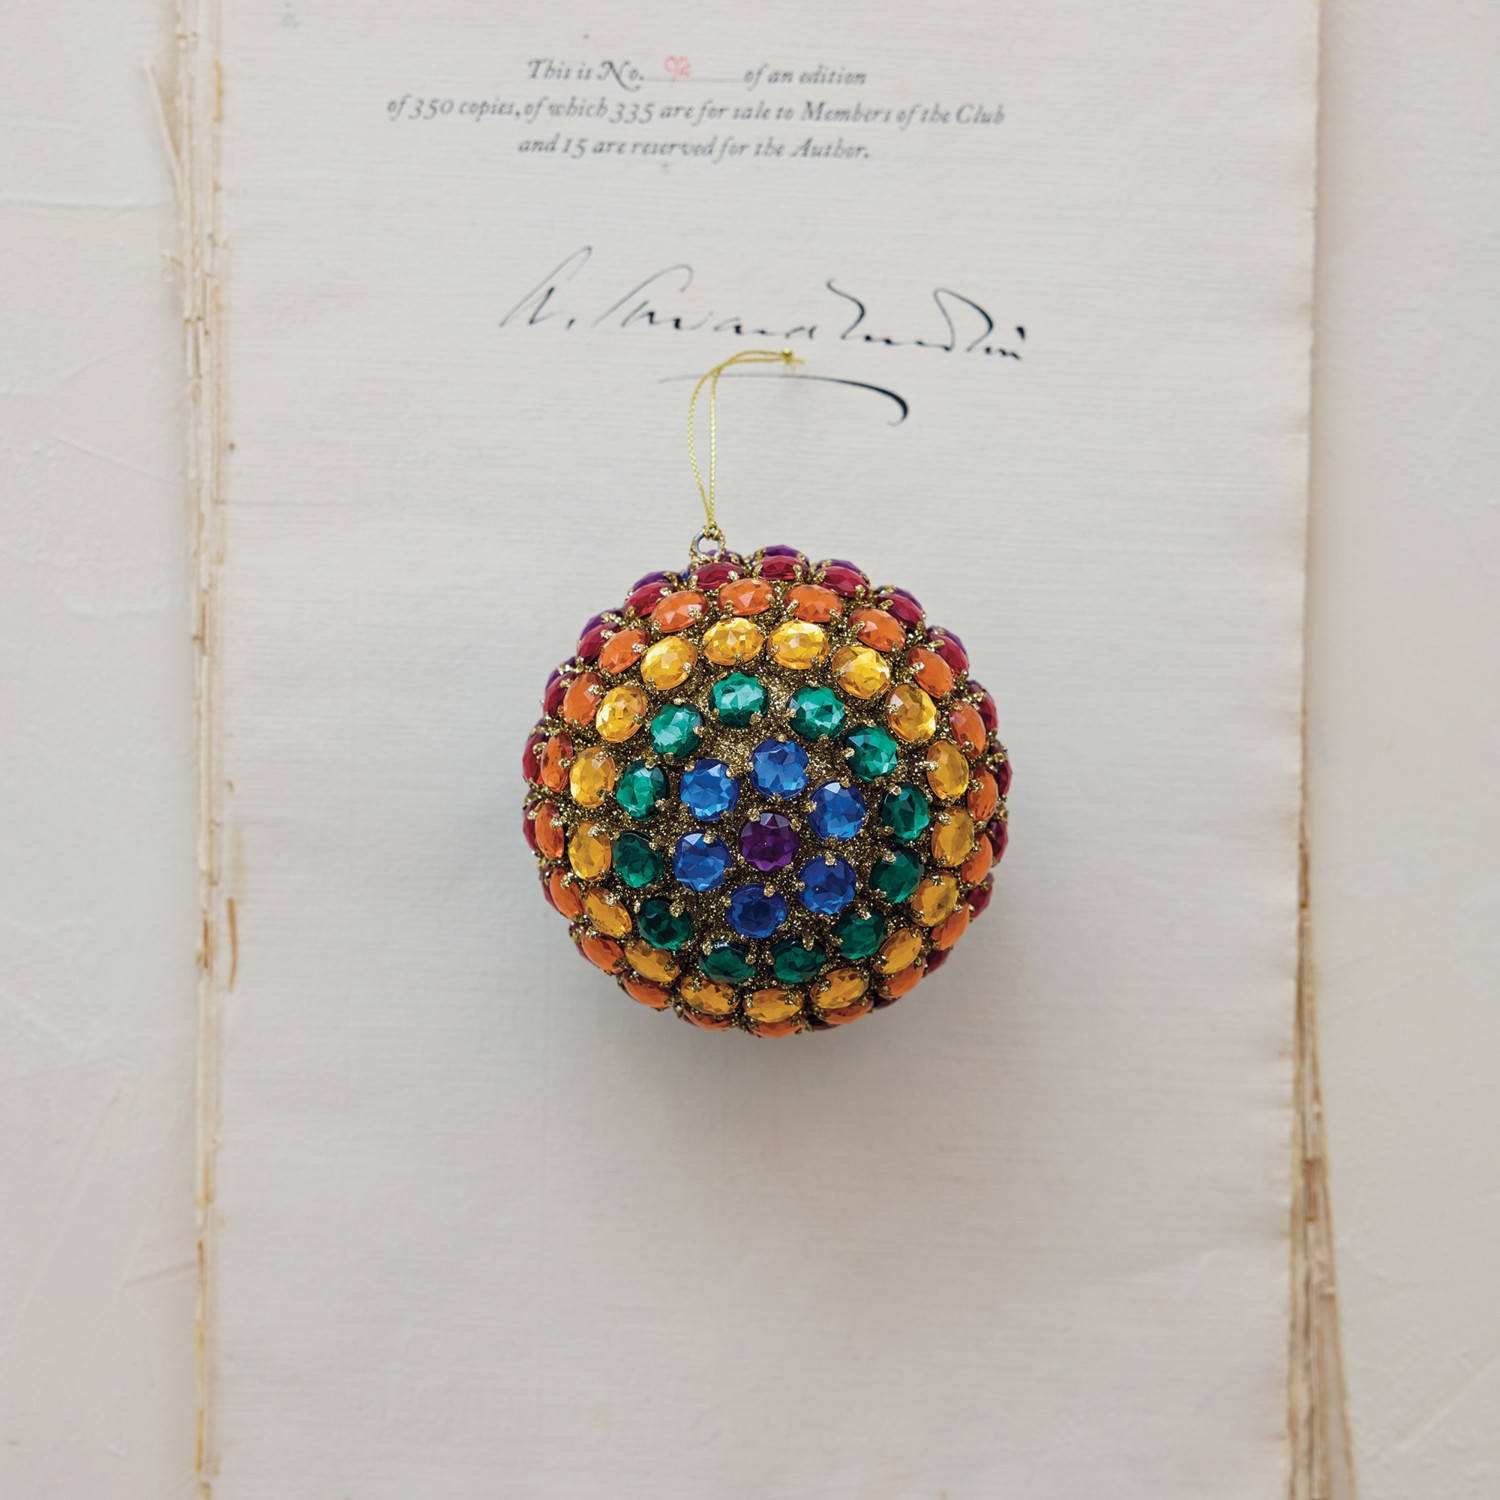 This is No. 92 of an edition
of 350 copies, of which 335 are for sale to Members of the Club
and 15 are reserved for the Author.